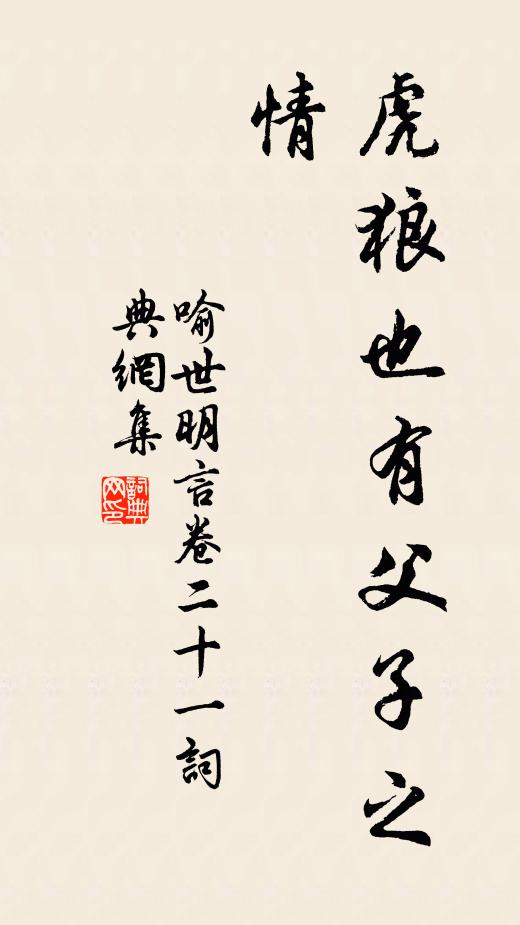 虎狼也有父子之
情
喻世明言卷二十一詞
典網集
詞典
网印